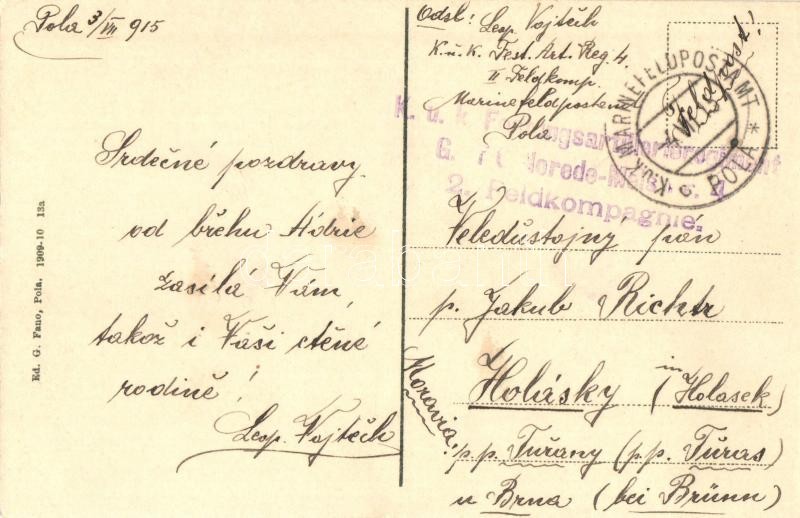 Pola 3/VII 915
Srdečné pozdravy
od břehu Adrie
zasílá Vám,
takož i Vaší ctěné
rodině!
Leop. Vojtěch
Ed. G. Fano, Pola. 1909-10 13a
Odsl: Leop. Vojtěch
K. u. K. Fest. Art. Reg 4.
II Feldkomp.
Marinefeldpostamt
Pola
Feldpost!
K.u.K. MARINEFELDPOSTAMT
POLA
K. u. k.
G.
2. Feldkompagnie.
Veledůstojný pán
p. Jakub Richtr
in
Holásky (Holasek)
Moravia:
p.p. Tuřany (p.p. Tŭras)
u Brna (bei Brünn)